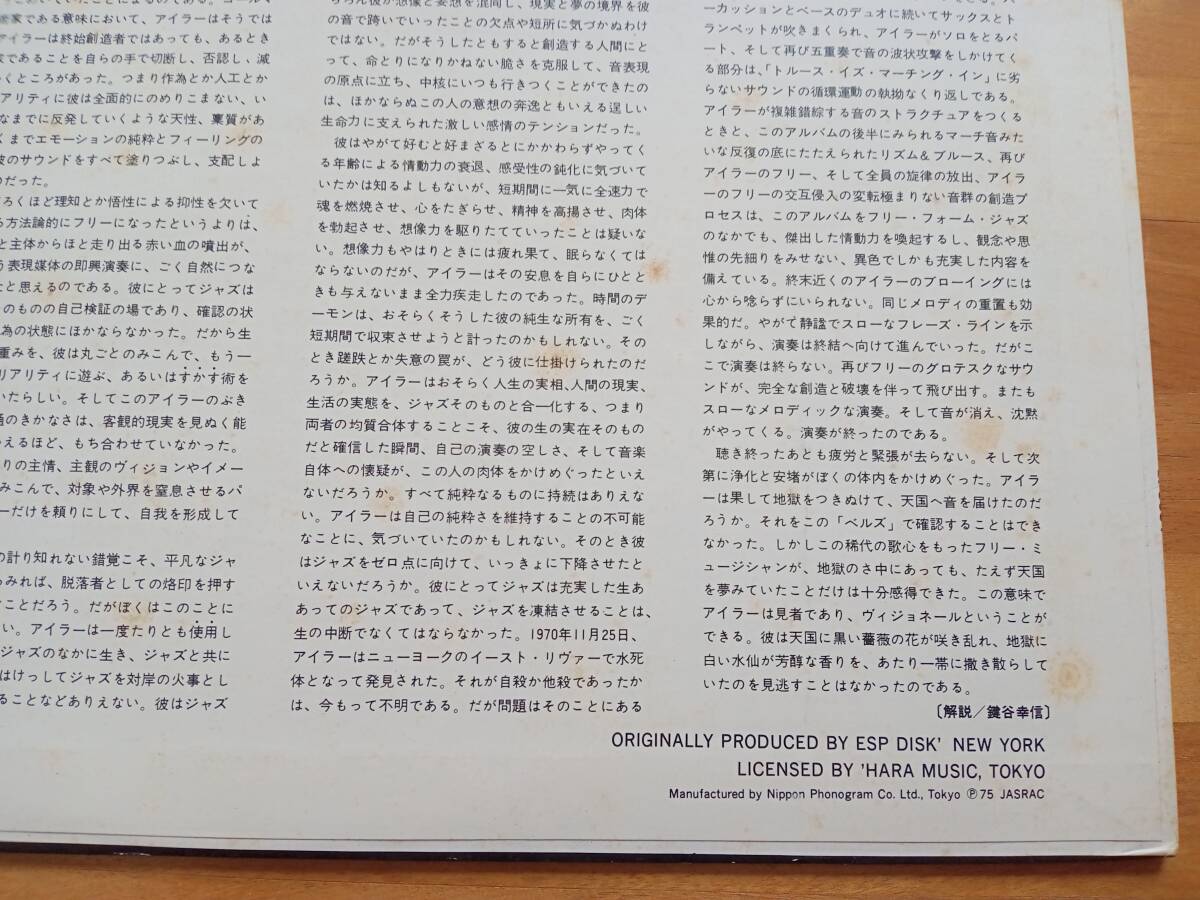 家である意味において、アイラーはそうでは
アイラーは終始創造者ではあっても、あるとき
であることを自らの手で切断し、否認し、滅
くところがあった。つまり作為とか人工とか
アリティに彼は全面的にのめりこまない、い
なまでに反発していくような天性、稟質があ
くまでエモーションの純粋とフィーリングの
彼のサウンドをすべて塗りつぶし、支配しよ
のだった。
ろくほど理知とか悟性による抑性を欠いて
る方法論的にフリーになったというよりは、
と主体からほと走り出る赤い血の噴出が、
う表現媒体の即興演奏に、ごく自然につな
たと思えるのである。彼にとってジャズは
のものの自己検証の場であり、確認の状
為の状態にほかならなかった。だから生
重みを、彼は丸ごとのみこんで、もう一
リアリティに遊ぶ、あるいはすかす術を
いたらしい。そしてこのアイラーのぶき
通のきかなさは、客観的現実を見ぬく能
えるほど、もち合わせていなかった。
りの主情、主観のヴィジョンやイメー
みこんで、対象や外界を窒息させるパ
ーだけを頼りにして、自我を形成して
の計り知れない錯覚こそ、平凡なジャ
らみれば、脱落者としての烙印を押す
ことだろう。だがぼくはこのことに
い。アイラーは一度たりとも使用し
ジャズのなかに生き、ジャズと共に
はけっしてジャズを対岸の火事とし
ることなどありえない。彼はジャズ
ちろん彼が想像と妄想を混同し、現実と夢の境界を彼
の音で跨いでいったことの欠点や短所に気づかぬわけ
ではない。だがそうしたともすると創造する人間にと
って、命とりになりかねない脆さを克服して、音表現
の原点に立ち、中核にいつも行きつくことができたの
は、ほかならぬこの人の意想の奔逸ともいえる逞しい
生命力に支えられた激しい感情のテンションだった。
彼はやがて好むと好まざるとにかかわらずやってく
る年齢による情動力の衰退、感受性の鈍化に気づいて
いたかは知るよしもないが、短期間に一気に全速力で
魂を燃焼させ、心をたぎらせ、精神を高揚させ、肉体
を勃起させ、想像力を駆りたてていったことは疑いな
い。想像力もやはりときには疲れ果て、眠らなくては
ならないのだが、アイラーはその安息を自らにひとと
きも与えないまま全力疾走したのであった。時間のデ
ーモンは、おそらくそうした彼の純生な所有を、ごく
短期間で収束させようと計ったのかもしれない。その
とき蹉跌とか失意の罠が、どう彼に仕掛けられたのだ
ろうか。アイラーはおそらく人生の実相、人間の現実、
生活の実態を、ジャズそのものと合一化する、つまり
両者の均質合体することこそ、彼の生の実在そのもの
だと確信した瞬間、自己の演奏の空しさ、そして音楽
自体への懐疑が、この人の肉体をかけめぐったといえ
ないだろうか。すべて純粋なるものに持続はありえな
い。アイラーは自己の純粋さを維持することの不可能
なことに、気づいていたのかもしれない。そのとき彼
はジャズをゼロ点に向けて、いっきょに下降させたと
いえないだろうか。彼にとってジャズは充実した生あ
あってのジャズであって、ジャズを凍結させることは、
生の中断でなくてはならなかった。1970年11月25日、
アイラーはニューヨークのイースト・リヴァーで水死
体となって発見された。それが自殺か他殺であったか
は、今もって不明である。だが問題はそのことにある
ーカッションとベースのデュオに続いてサックスとト
ランペットが吹きまくられ、アイラーがソロをとるパ
ート、そして再び五重奏で音の波状攻撃をしかけてく
る部分は、「トルース・イズ・マーチング・イン」に劣
らないサウンドの循環運動の執拗なくり返しである。
アイラーが複雑錯綜する音のストラクチュアをつくる
ときと、このアルバムの後半にみられるマーチ音みた
いな反復の底にたたえられたリズム＆ブルース、再び
アイラーのフリー、そして全員の旋律の放出、アイラ
ーのフリーの交互侵入の変転極まりない音群の創造プ
ロセスは、このアルバムをフリー・フォーム・ジャズ
のなかでも、傑出した情動力を喚起するし、観念や思
惟の先細りをみせない、異色でしかも充実した内容を
備えている。終末近くのアイラーのブローイングには
心から唸らずにいられない。同じメロディの重置も効
果的だ。やがて静謐でスローなフレーズ・ラインを示
しながら、演奏は終結へ向けて進んでいった。だがこ
こで演奏は終らない。再びフリーのグロテスクなサウ
ンドが、完全な創造と破壊を伴って飛び出す。またも
スローなメロディックな演奏。そして音が消え、沈黙
がやってくる。演奏が終ったのである。
聴き終ったあとも疲労と緊張が去らない。そして次
第に浄化と安堵がぼくの体内をかけめぐった。アイラ
ーは果して地獄をつきぬけて、天国へ音を届けたのだ
ろうか。それをこの「ベルズ」で確認することはできな
かった。しかしこの稀代の歌心をもったフリー・ミ
ュージシャンが、地獄のさ中にあっても、たえず天国
を夢みていたことだけは十分感得できた。この意味で
アイラーは見者であり、ヴィジョネールということが
できる。彼は天国に黒い薔薇の花が咲き乱れ、地獄に
白い水仙が芳醇な香りを、あたり一帯に撒き散らして
いたのを見逃すことはなかったのである。
〔解説／鍵谷幸信〕
ORIGINALLY PRODUCED BY ESP DISK' NEW YORK
LICENSED BY 'HARA MUSIC, TOKYO
Manufactured by Nippon Phonogram Co. Ltd., Tokyo Ⓟ75 JASRAC